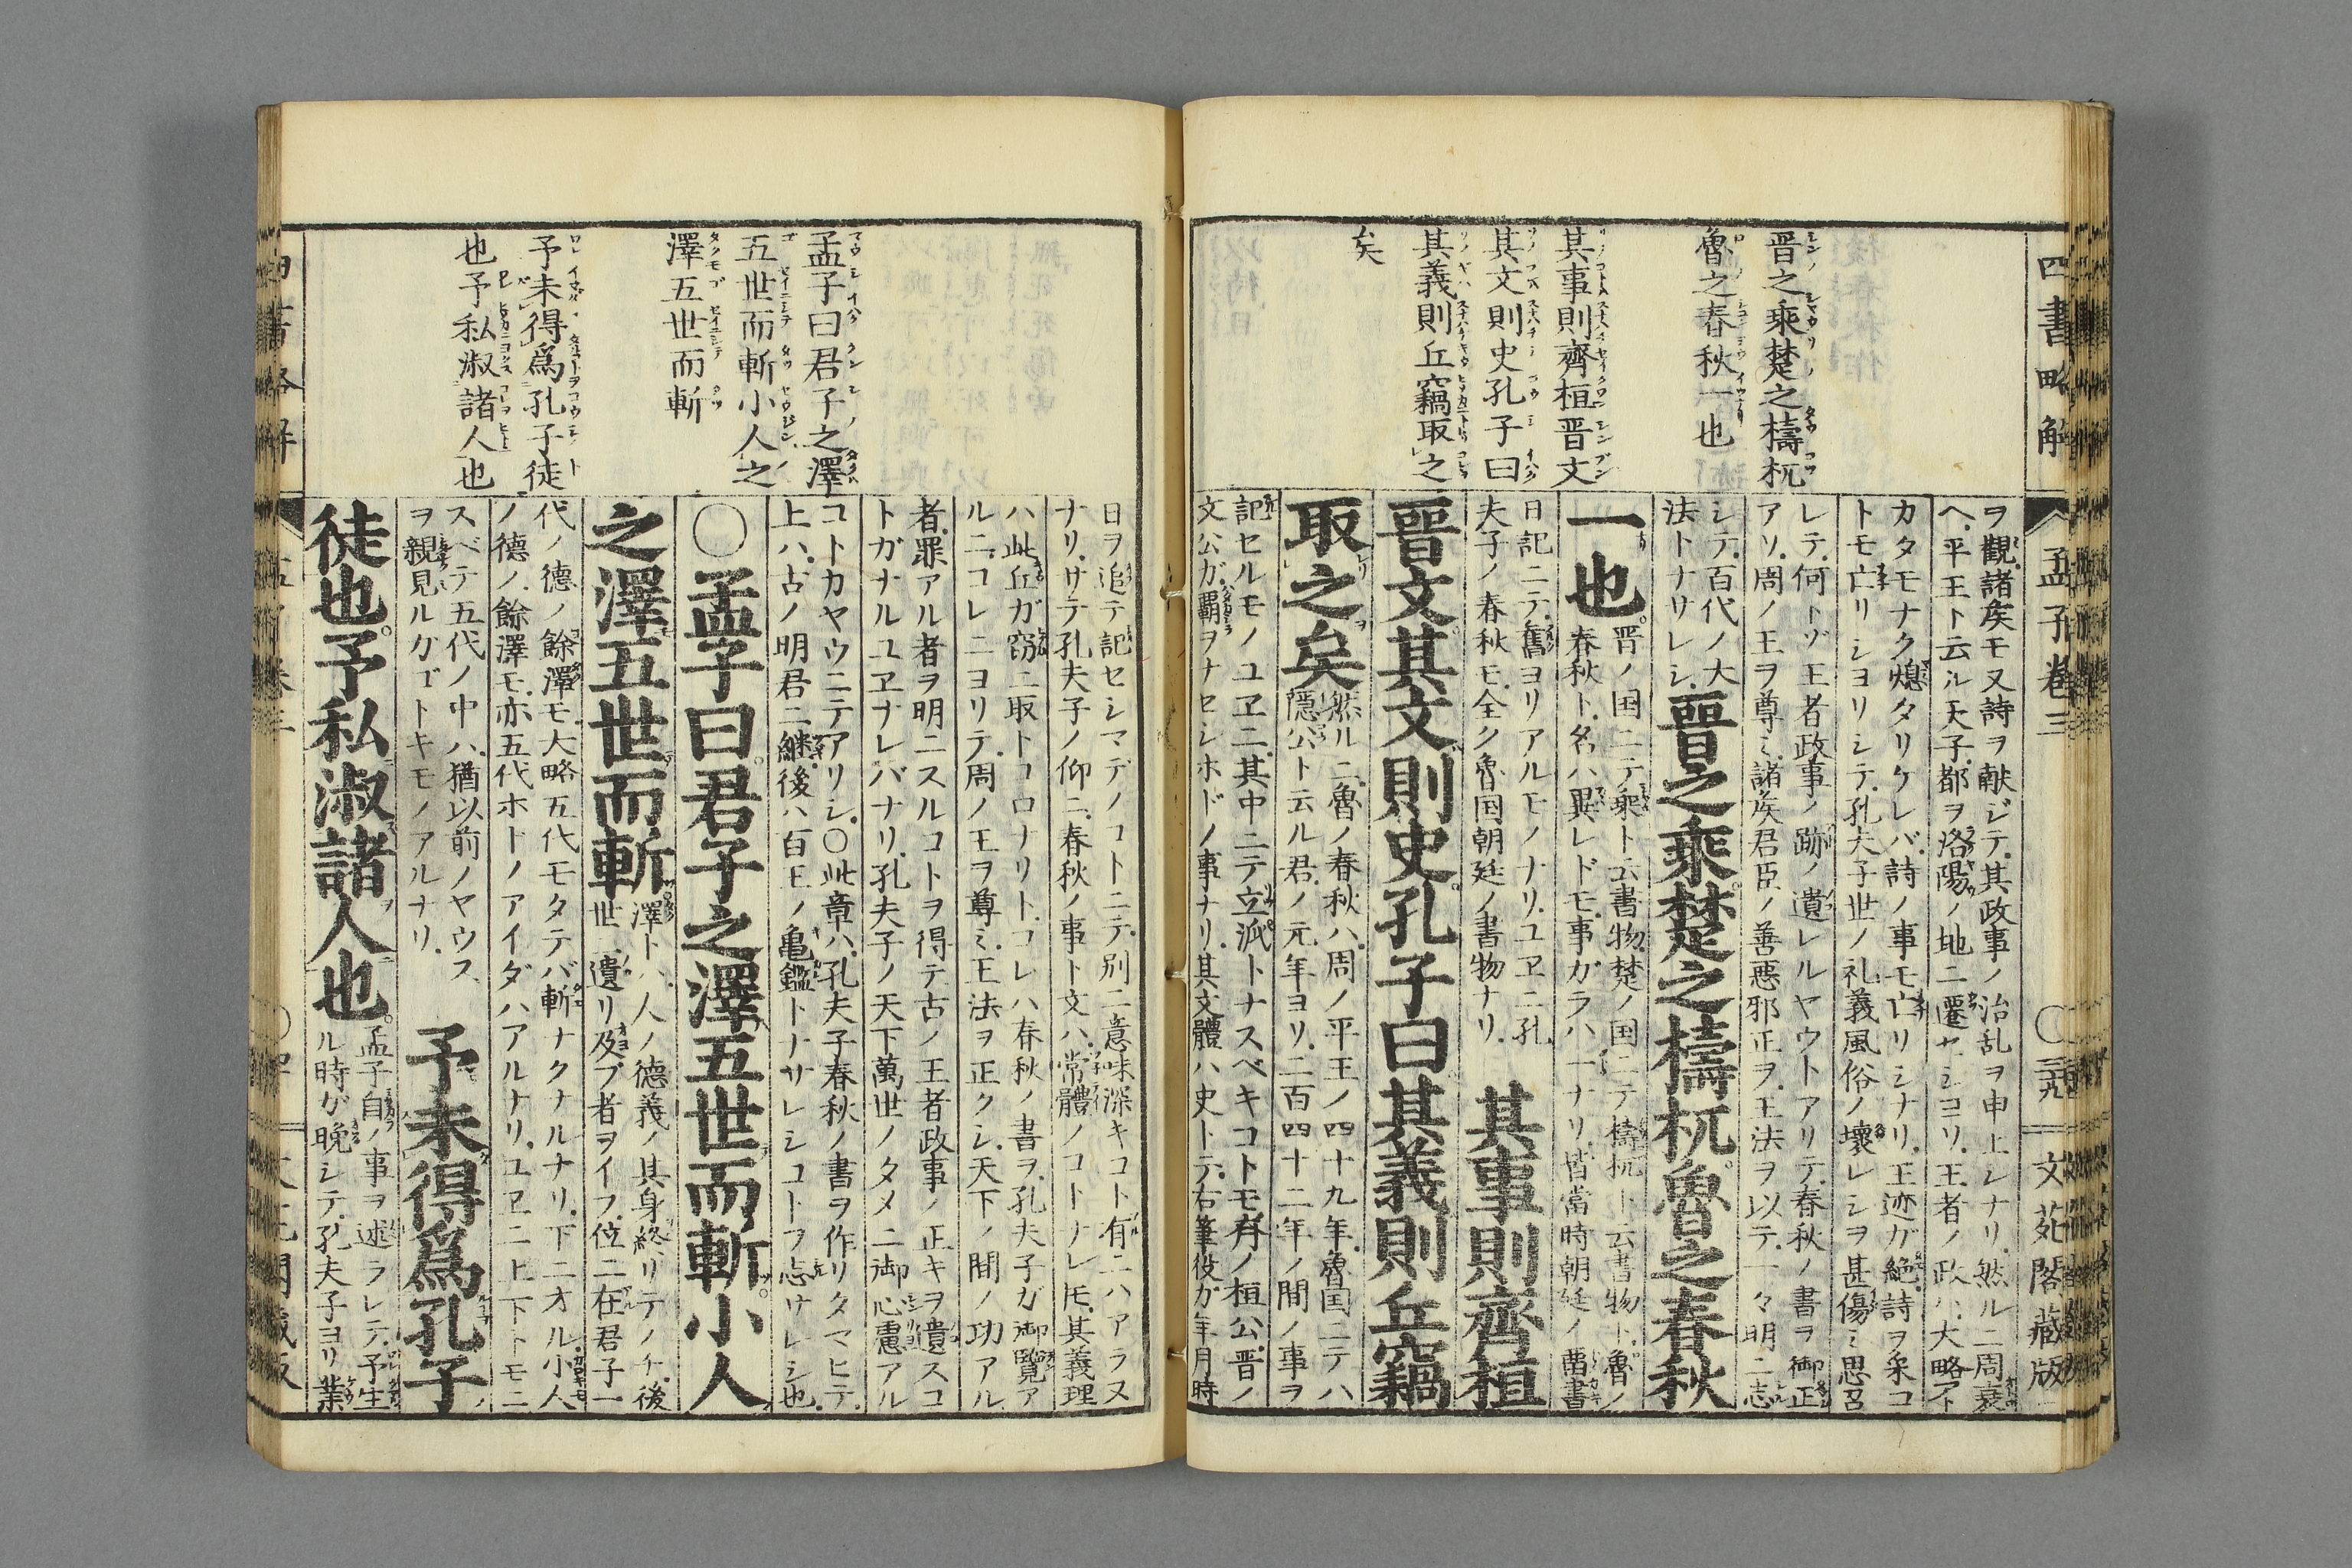 四書略解
孟子卷三
文苑閣藏版
晋之乘楚之檮杌
魯之春秋一也
其事則齊桓晋文
其文則史孔子曰
其義則丘竊取之
矣
ヲ觀諸矦モ又詩ヲ献ジテ其政事ノ治乱ヲ申上シナリ然ルニ周衰
ヘ平王ト云ル天子都ヲ洛陽ノ地ニ遷セシヨリ王者ノ政ハ大略アト
カタモナク熄タリケレバ詩ノ事モ亡リシナリ王迹ガ絶詩ヲ采コ
トモ亡リシヨリシテ孔夫子世ノ礼義風俗ノ壞レシヲ甚傷ミ思召
レテ何トゾ王者政事ノ跡ノ遺レルヤウトアリテ春秋ノ書ヲ御正
アソ周ノ王ヲ尊ミ諸矦君臣ノ善惡邪正ヲ王法ヲ以テ一々明ニ志
シテ百代ノ大
法トナサレシ
晋之乘楚之檮杌魯之春秋
一也
晋ノ国ニテ乘ト云書物楚ノ国ニテ檮杌ト云書物ト魯ノ
春秋ト名ハ異レドモ事ガラハ一ナリ皆當時朝廷ノ書
日記ニテ舊ヨリアルモノナリユヱニ孔
夫子ノ春秋モ全ク魯国朝廷ノ書物ナリ
其事則齊桓
晋文其文則史孔子曰其義則丘竊
取之矣
然ルニ魯ノ春秋ハ周ノ平王ノ四十九年魯国ニテハ
隱公ト云ル君ノ元年ヨリ二百四十二年ノ間ノ事ヲ
記セルモノユヱニ其中ニテ立派トナスベキコトモ有ノ桓公晋ノ
文公ガ覇ヲナセシホドノ事ナリ其文體ハ史トテ右筆役ガ年月時
孟子曰君子之澤
五世而斬小人之
澤五世而斬
予未得爲孔子徒
也予私淑諸人也
日ヲ追テ記セシマデノコトニテ別ニ意味深キコト有ニハアラヌ
ナリサテ孔夫子ノ仰ニ春秋ノ事ト文ハ常體ノコトナレ𪜈其義理
ハ此丘ガ窃ニ取トコロナリトコレハ春秋ノ書ヲ孔夫子ガ御覽ア
ルニコレニヨリテ周ノ王ヲ尊ミ王法ヲ正クシ天下ノ間ノ功アル
者罪アル者ヲ明ニスルコトヲ得テ古ノ王者政事ノ正キヲ遺スコ
トガナルユヱナレバナリ孔夫子ノ天下萬世ノタメニ御心慮アル
コトカヤウニテアリシ〇此章ハ孔夫子春秋ノ書ヲ作リタマヒテ
上ハ古ノ明君ニ継後ハ百王ノ亀鑑トナサレシコトヲ志サレシ也
〇孟子曰君子之澤五世而斬小人
之澤五世而斬
澤トハ人ノ德義ノ其身終リテノチ後
世ニ遺リ及ブ者ヲイフ位ニ在君子一
代ノ德ノ餘澤モ大略五代モタテバ斬ナクナルナリ下ニオル小人
ノ德ノ餘澤モ亦五代ホトノアイダハアルナリユヱニ上下トモニ
スベテ五代ノ中ハ猶以前ノヤウス
ヲ親見ルガゴトキモノアルナリ
予未得爲孔子
徒也予私淑諸人也
孟子自ノ事ヲ述ラレテ予生
ル時ガ晩シテ孔夫子ヨリ業